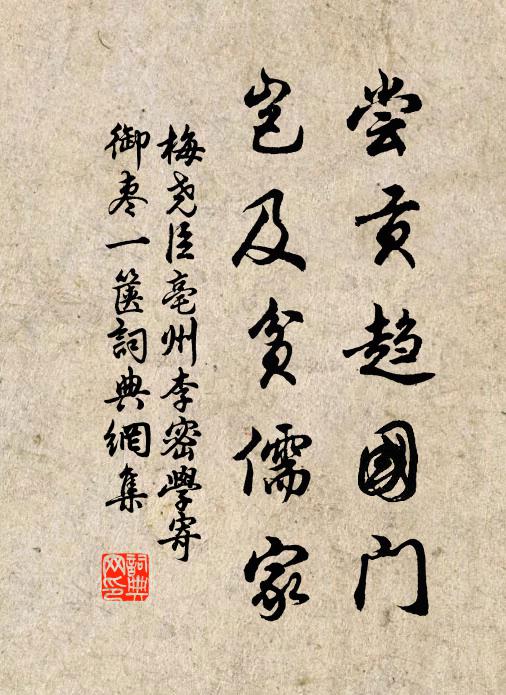 尝贡趋國门
岂及贫儒家
梅尧臣亳州李密學寄
御枣一箧詞典網集
詞典
网印